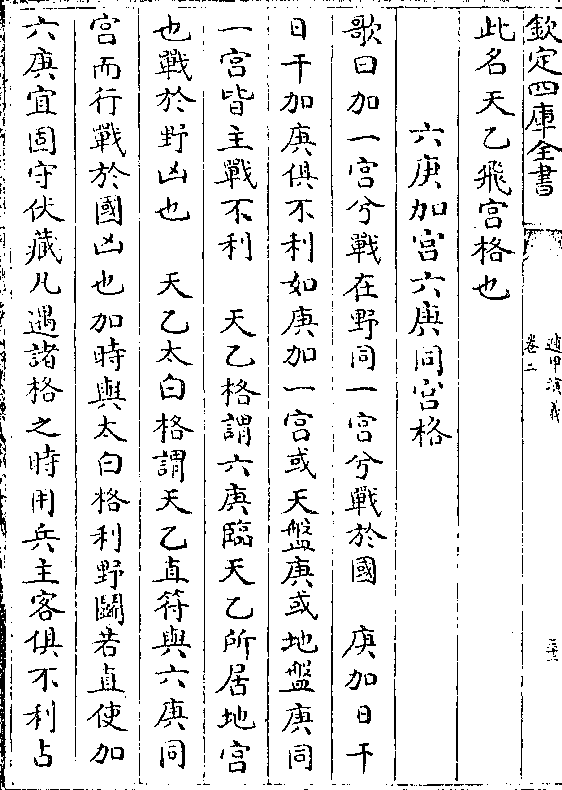 欽定四庫全書
遁甲演義
卷二
三十二
此名天乙飛宫格也
六庚加宫六庚同宫格
歌曰加一宫兮戰在野同一宫兮戰於國　庚加日干
日干加庚俱不利如庚加一宫或天盤庚或地盤庚同
一宫皆主戰不利　天乙格謂六庚臨天乙所居地宫
也戰於野凶也　天乙太白格謂天乙直符與六庚同
宫而行戰於國凶也加時與太白格利野鬭若直使加
六庚宜固守伏藏凡遇諸格之時用兵主客俱不利占